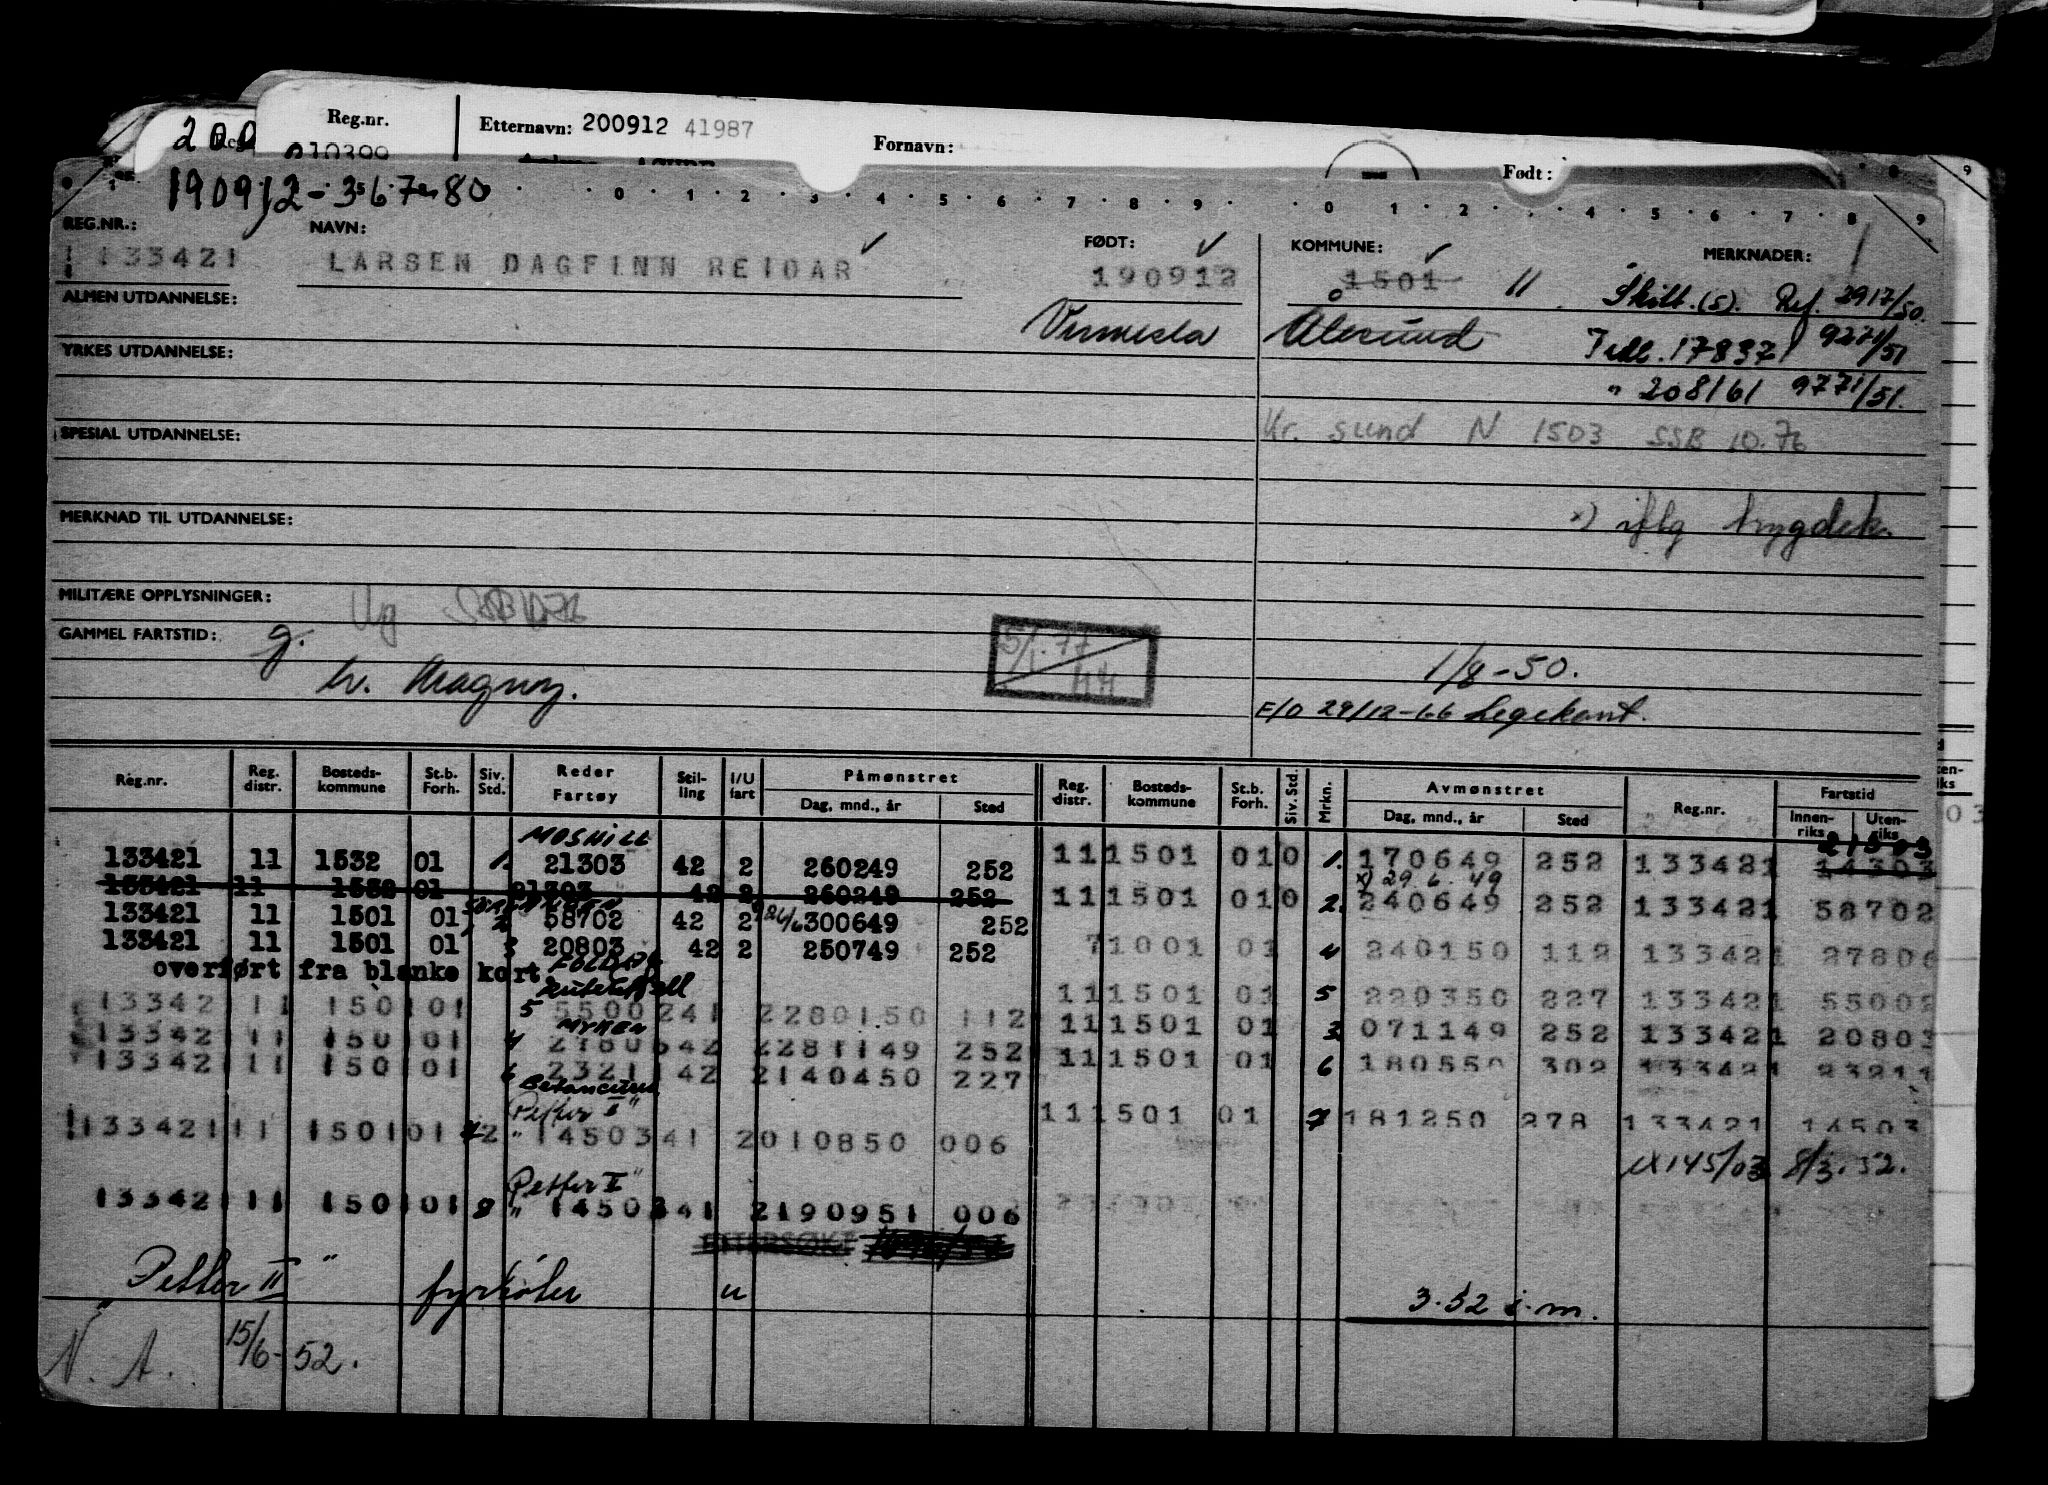 Reg.nr. Etternavn: 200912 41987 Fornavn: Født:
200
010399
190912-36780
0 1 2 3 4 5 6 7 8 9 0 1 2 3 4 5 6 7 8 9
REG.NR.: NAVN: FØDT: KOMMUNE: MERKNADER:
133421 LARSEN DAGFINN REIDAR 190912 1501 11 Skilt.(S). Ref. 2917/50.
ALMEN UTDANNELSE:
Ålesund Tidl. 178371 9271/51
YRKES UTDANNELSE:
" 208161 9771/51.
SPESIAL UTDANNELSE: Kr. sund N 1503 SSB 10.76
MERKNAD TIL UTDANNELSE: x) iflg trygdek.
MILITÆRE OPPLYSNINGER: Ug
GAMMEL FARTSTID: g. 5/1.77
1/8-50.
E/O 29/12-66 Legekont.
Reg.nr. Reg. distr. Bosteds-kommune St.b. Forh. Siv. Std. Reder Fartøy Stil-ling I/U fart Påmønstret Dag, mnd., år Sted Reg. distr. Bosteds-kommune St.b. Forh. Siv. Std. Mrkn. Avmønstret Dag, mnd., år Sted Reg.nr. Fartstid Innen-riks Uten-riks
MOSHILL 21303
133421 11 1532 01 1. 21303 42 2 260249 252 11 1501 01 0 1. 170649 252 133421 14303
x) 29.6.49
133421 11 1532 01 21303 42 2 260249 252 11 1501 01 0 2. 240649 252 133421 58702
133421 11 1501 01 2 58702 42 2 24/6 300649 252
133421 11 1501 01 3 20803 42 2 250749 252 7 1001 01 4 240150 112 133421 27806
overført fra blanke kort
11 1501 01 5 220350 227 133421 55002
13342 11 150 01 5 5500241 2280150 112
MYKEN 11 1501 01 3 071149 252 133421 20803
13342 11 150 01 4 2780642 2281149 252
11 1501 01 6 180550 302 133421 23211
13342 11 150 01 6 2321142 2140450 227
Betancuria
Petter II" 11 1501 01 7 181250 278 133421 14503
133421 11 1501 01 2 " 1450341 2010850 006
UX 145/03 8/3.52.
Petter II"
13342 11 150 01 8 " 1450341 2190951 006
ETTERSØKT
Petter II " fyrbøter u 3.52 i.m.
N. A. 15/6-52.